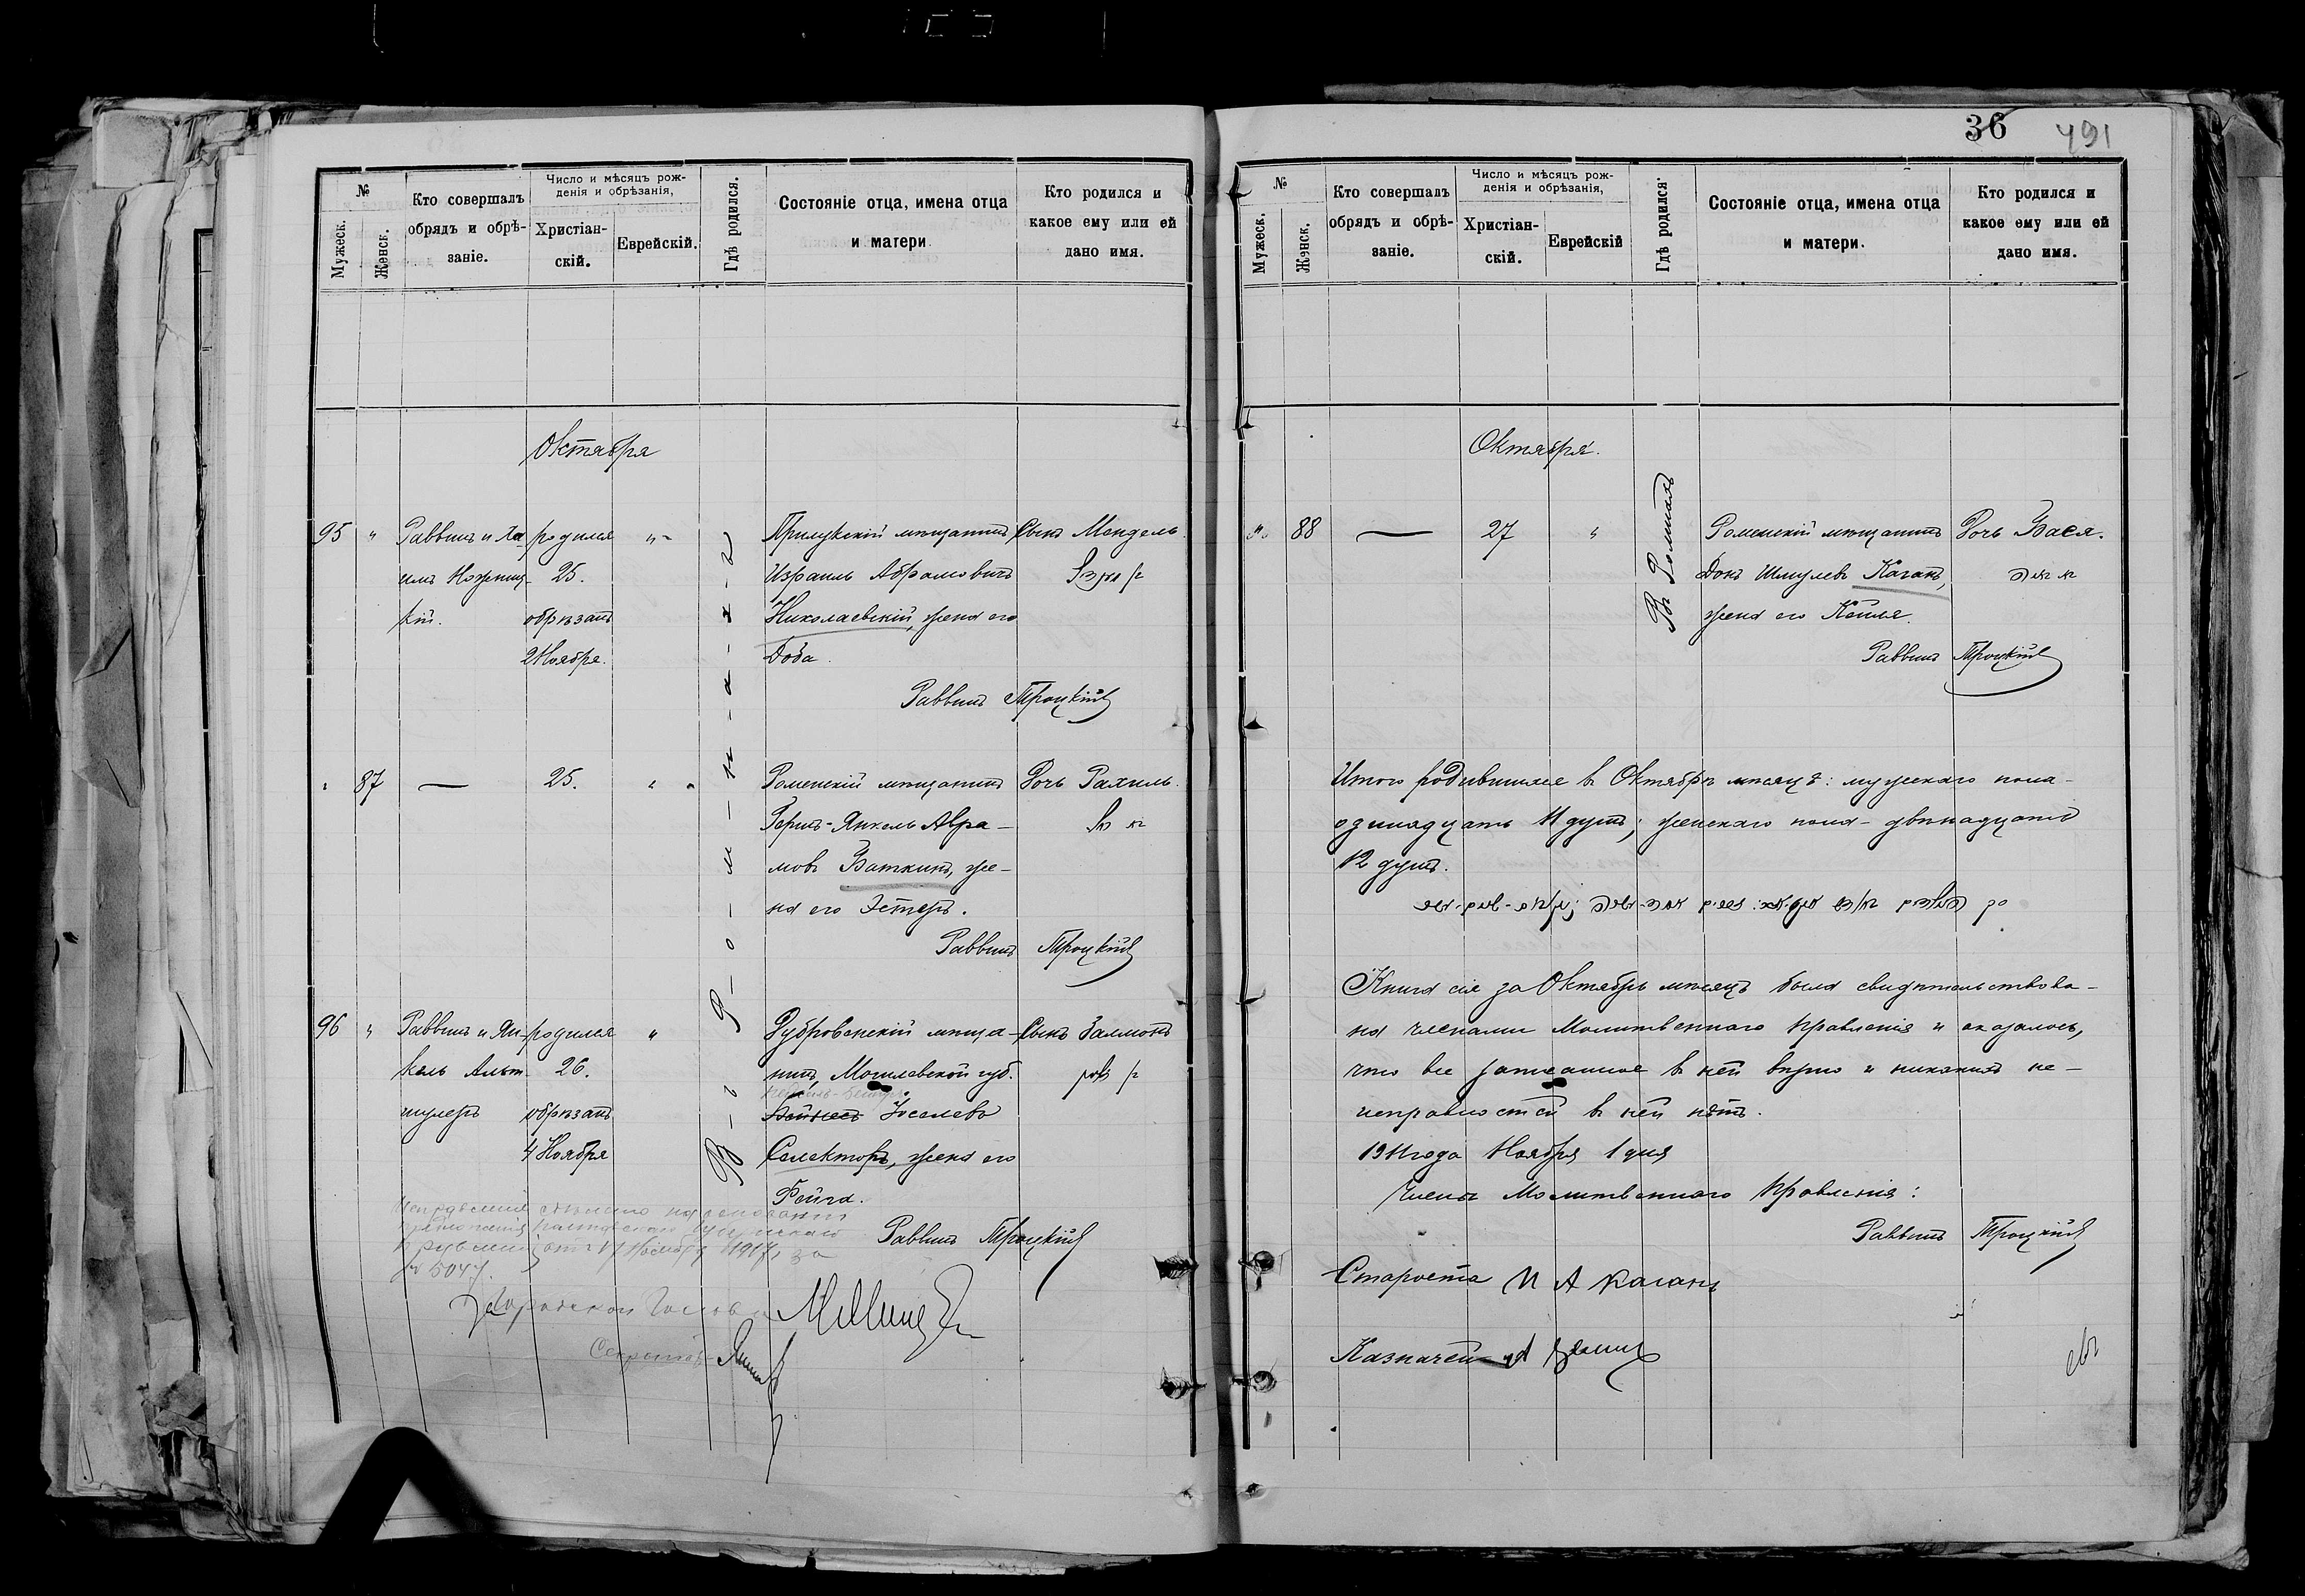 36 491
№
Мужеск.
Женск.
Кто совершалъ
обрядъ и обрѣ-
заніе.
Число и мѣсяцъ рож-
денія и обрѣзанія,
Христіан-
скій.
Еврейскій.
Гдѣ родился.
Состояніе отца, имена отца
и матери
Кто родился и
какое ему или ей
дано имя.
Октября
В-ъ Р-о-м-н-а-х-ъ
95 " Раввинъ и Ха- родился "
имъ Ножниц- 25.
кій. обрѣзанъ
2 Ноября.
Прилукскій мѣщанинъ
Израиль Абрамовичъ
Николаевскій, жена его
Доба.
Сынъ Мендель.
Раввинъ Троцкій
" 87 — 25. " "
Роменскій мѣщанинъ
Герцъ-Янкель Авра-
мовъ Ваткинъ, же-
на его Эстеръ.
Дочь Рахиль.
Раввинъ Троцкій
96 " Раввинъ и Ян- родился "
кель Альт- 26.
шулеръ обрѣзанъ
4 Ноября
Дубровенскій мѣща-
нинъ, Могилевской губ.
Іоселевъ
Селекторъ, жена его
Фейга.
Сынъ Залманъ
Раввинъ Троцкій
Исправленіе сдѣлано на основаніи
1917, за
№ 5047.
Городской Голова
Секретарь
№
Мужеск.
Женск.
Кто совершалъ
обрядъ и обрѣ-
заніе.
Число и мѣсяцъ рож-
денія и обрѣзанія,
Христіан-
скій.
Еврейскій
Гдѣ родился.
Состояніе отца, имена отца
и матери.
Кто родился и
какое ему или ей
дано имя.
Октября.
Въ Ромнахъ
" 88 — 27 "
Роменскій мѣщанинъ
Донъ Шмулевъ Каганъ,
жена его Кейля.
Дочь Вася.
Раввинъ Троцкій
Итого родившихся въ Октябрѣ мѣсяцѣ: мужескаго пола-
одинадцать 11 душъ; женскаго пола - двѣнадцать
12 душъ.
Книга сія за Октябрь мѣсяцъ была свидѣтельствова-
на членами Молитвеннаго Правленія и оказалось,
что все записанное въ ней вѣрно и никакихъ не-
исправностей въ ней нѣтъ.
1911 года Ноября 1 дня
Члены Молитвеннаго Правленія:
Раввинъ Троцкій
Староста И А Каганъ
Казначей